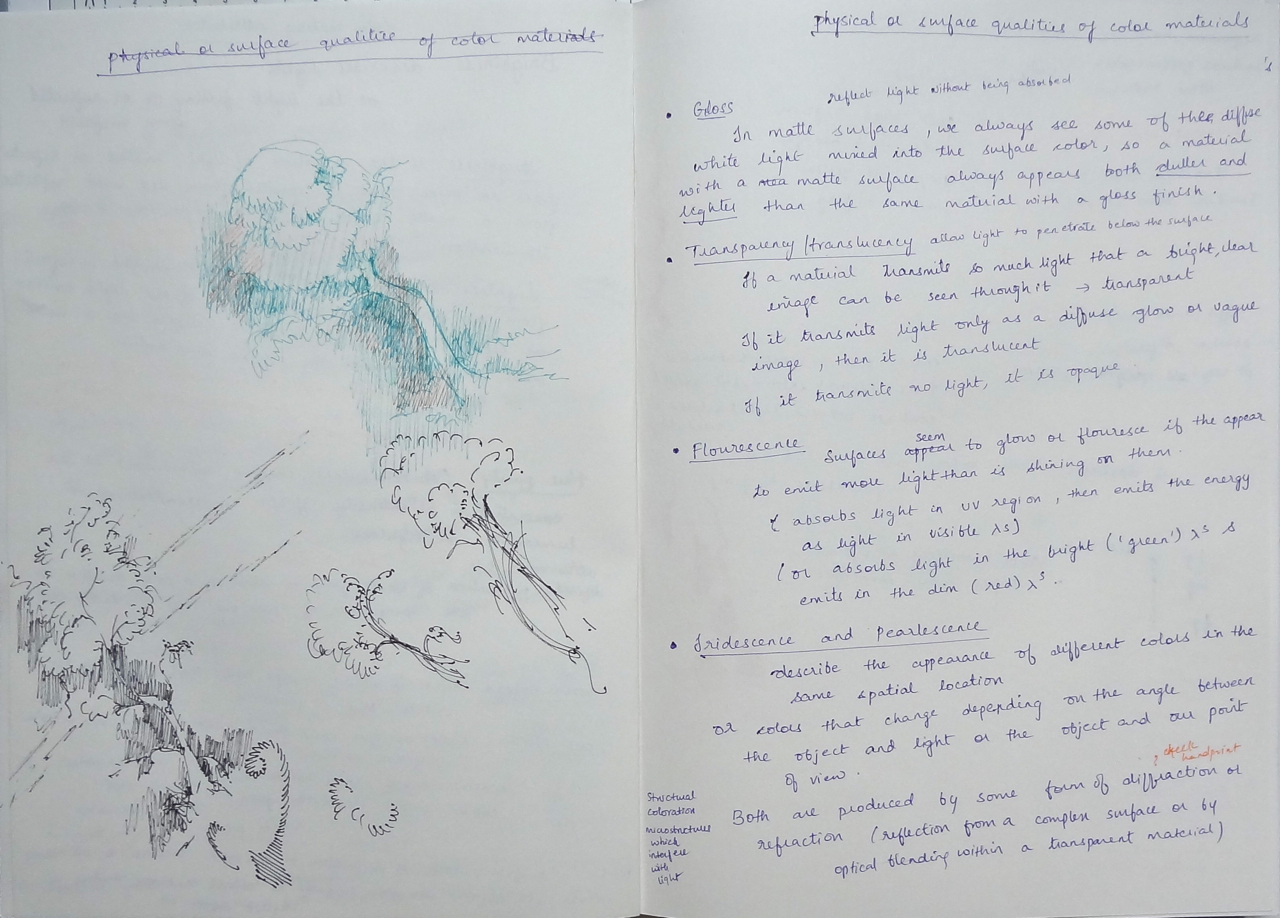 physical or surface qualities of color materials
physical or surface qualities of color materials
's
• Gloss
reflect light without being absorbed
In matte surfaces, we always see some of the diffuse
white light mixed into the surface color, so a material
with a matte surface always appears both duller and
lighter than the same material with a gloss finish.
• Transparency/translucency allow light to penetrate below the surface
If a material transmits so much light that a bright, clear
image can be seen through it → transparent
If it transmits light only as a diffuse glow or vague
image, then it is translucent
If it transmits no light, it is opaque
• Flourescence Surfaces appear seem to glow or flouresce if the appear
to emit more light than is shining on them.
( absorbs light in UV region, then emits the energy
as light in visible λs)
(or absorbs light in the bright ('green') λs &
emits in the dim (red) λs.
• Iridescence and Pearlescence
describe the appearance of different colors in the
same spatial location
or colors that change depending on the angle between
the object and light or the object and our point
of view.
? check
handprint
Both are produced by some form of diffraction or
refraction (reflection from a complex surface or by
optical blending within a transparent material)
Structural
coloration
microstructures
which
interfere
with
light